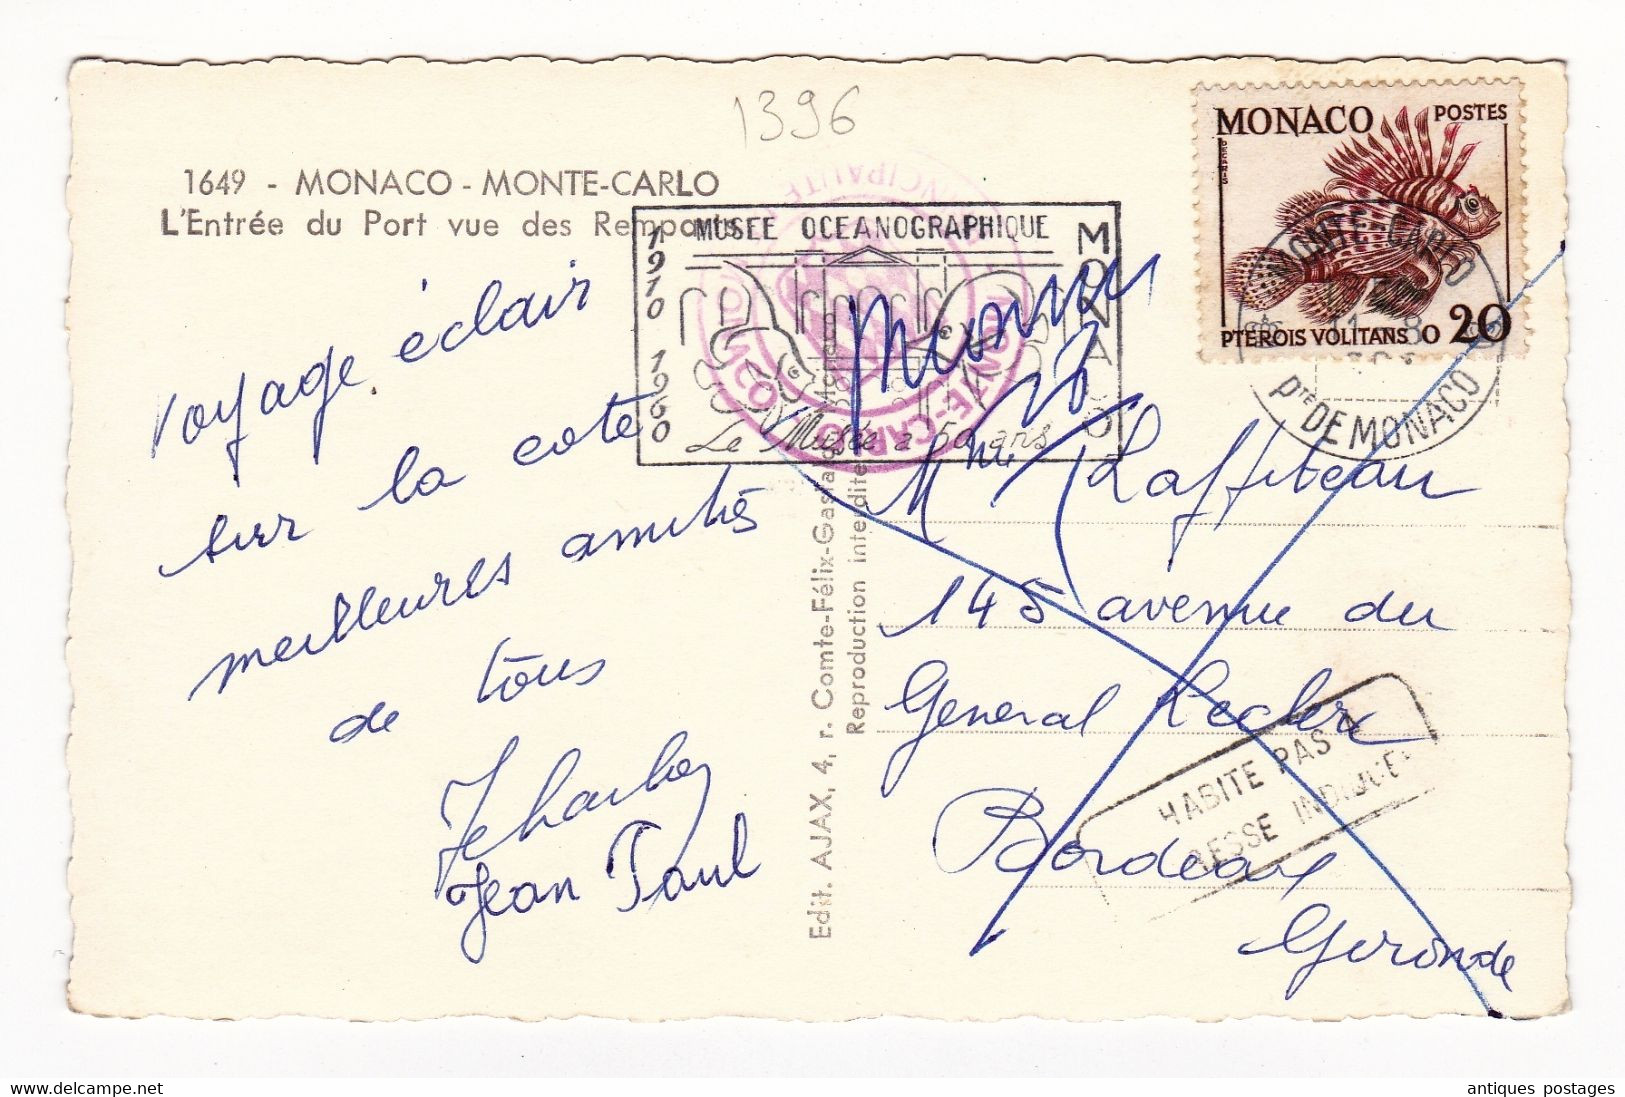 1396
1649 - MONACO - MONTE-CARLO
L'Entrée du Port vue des Remparts
MUSEE OCEANOGRAPHIQUE
1910 1960
MONACO
Le Musée a 50 ans
MONTE-CARLO
PRINCIPAUTÉ
MONACO
POSTES
DECARIS
PTEROIS VOLITANS
0 20
MONTE-CARLO
11 - 8
Pte DE MONACO
voyage éclair
sur la cote
meilleures amitiés
de tous
Jean Paul
Edit. AJAX, 4, r. Comte-Félix-Gastaldi
Reproduction interdite
Laffiteau
145 avenue du
General Leclerc
Bordeaux
Gironde
HABITE PAS
ESSE INDIQUE
www.delcampe.net
antiques postages